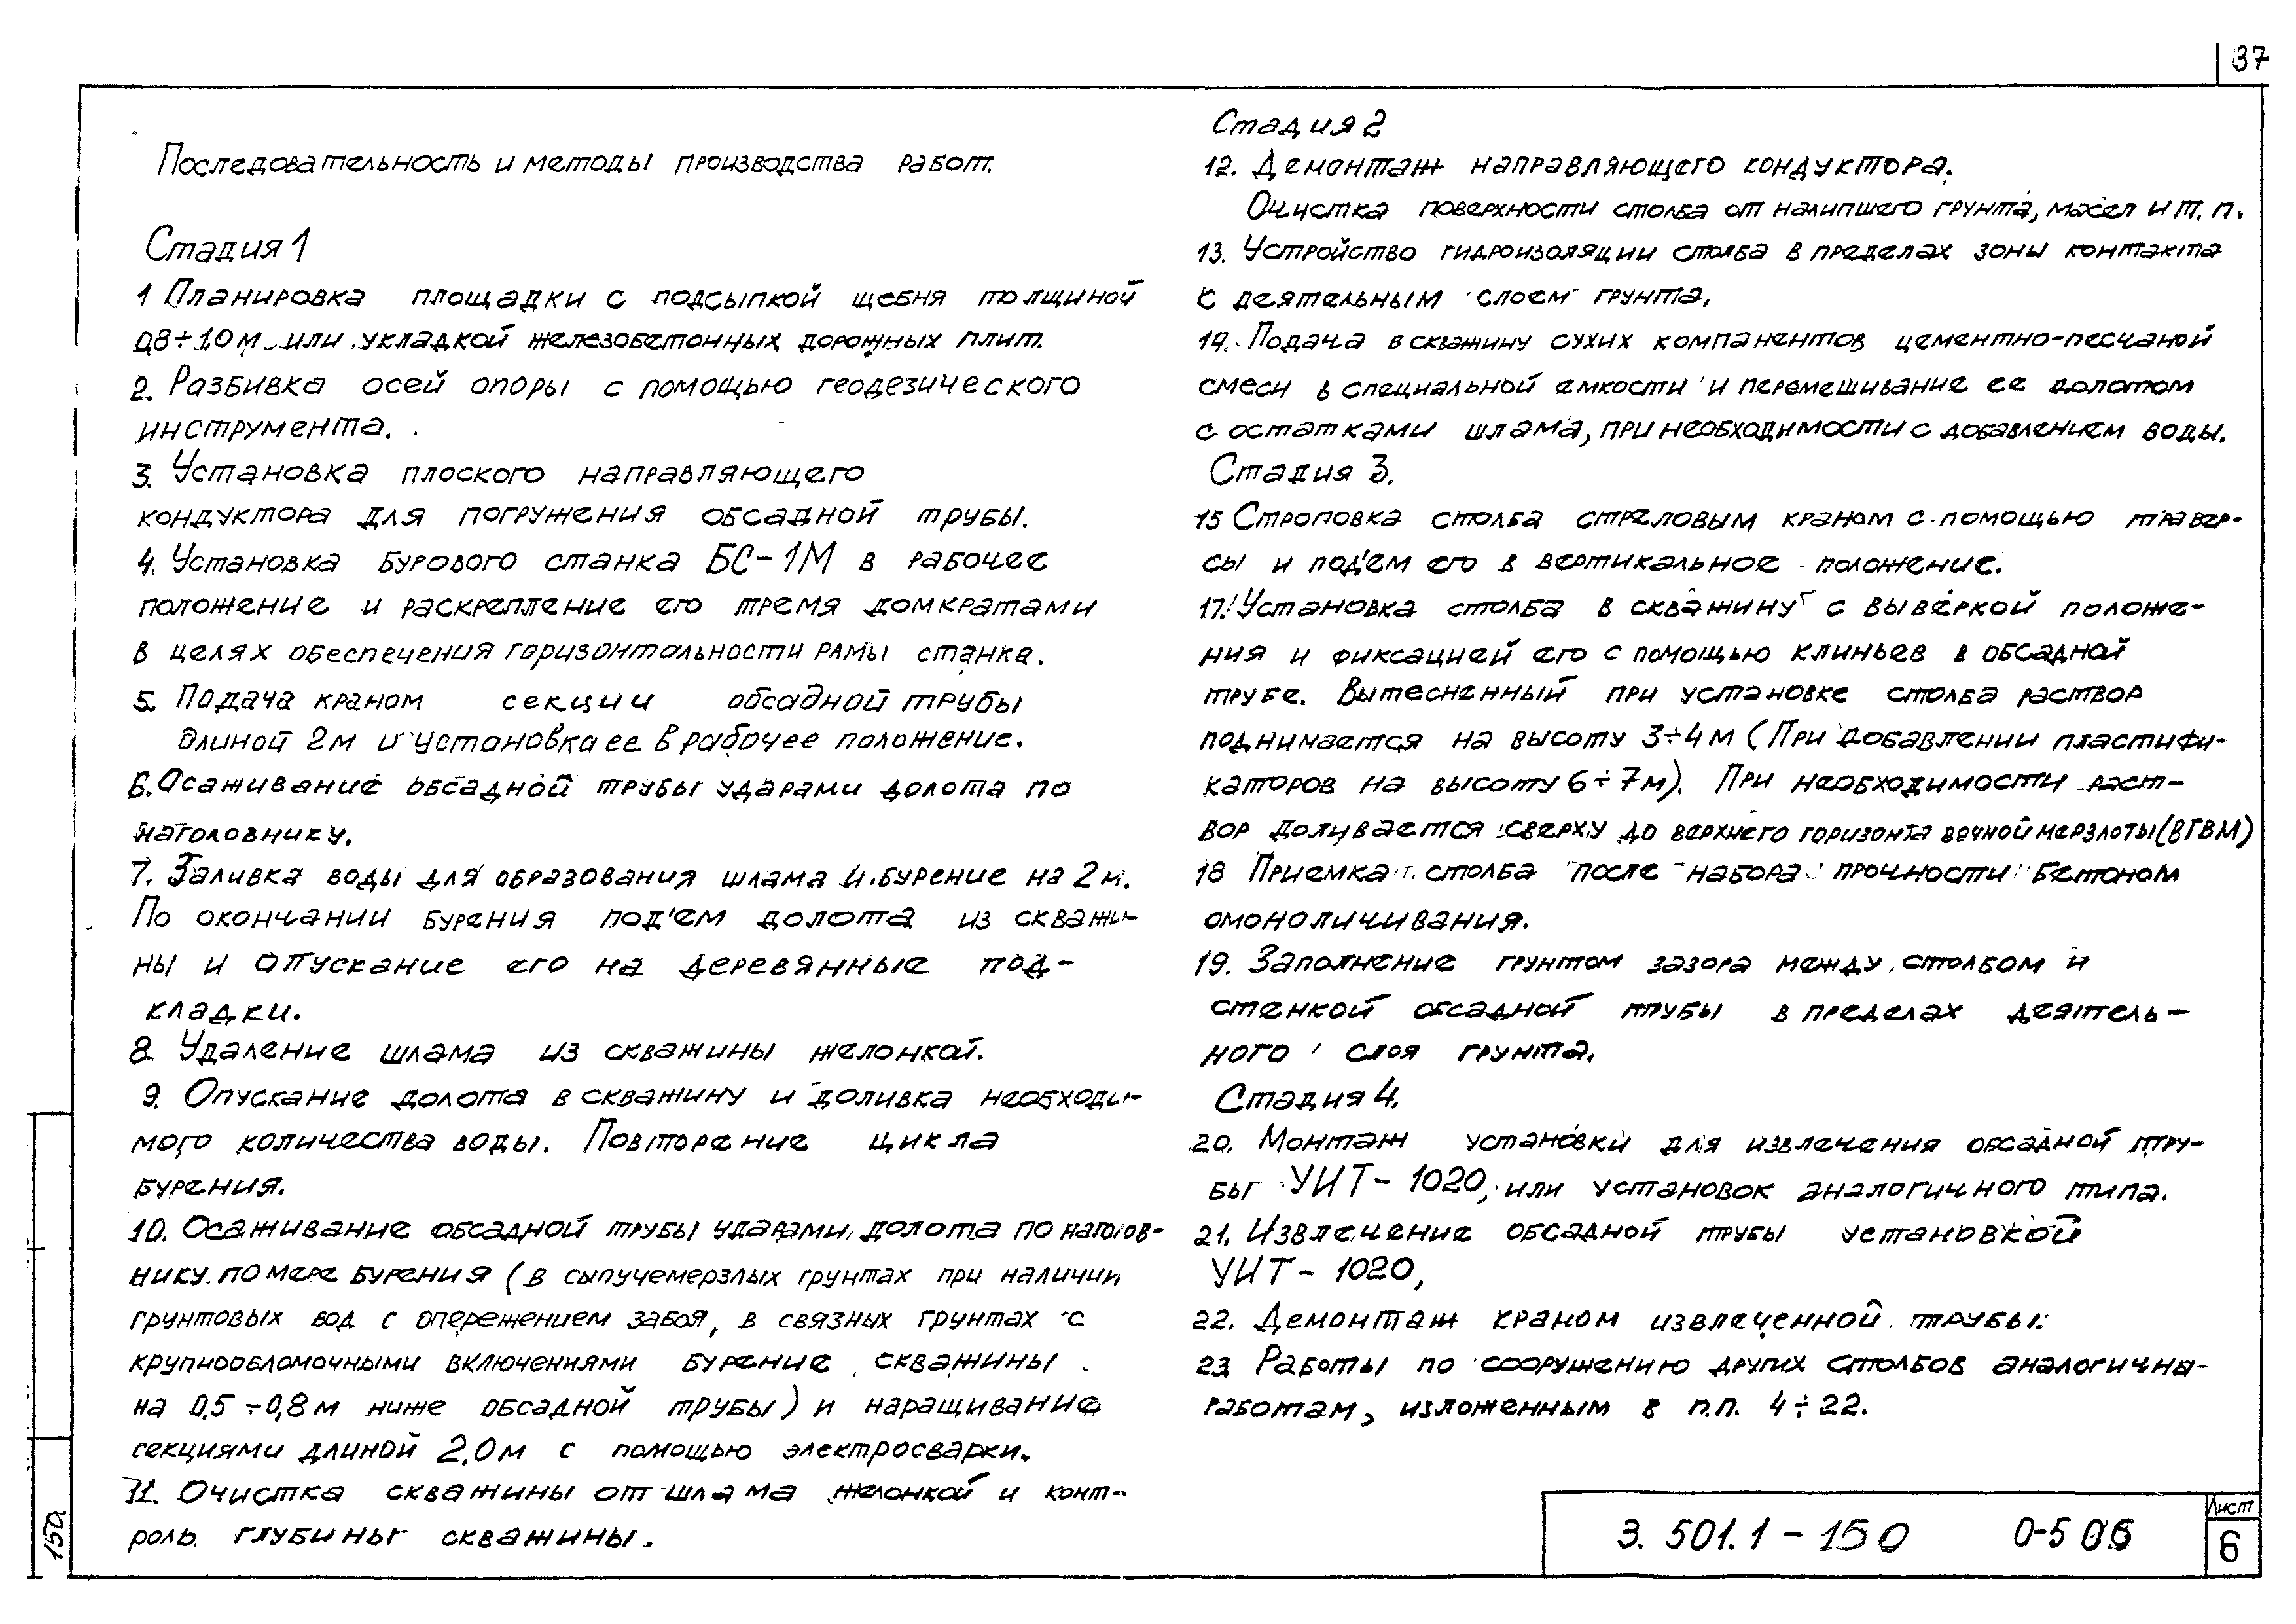 37
Последовательность и методы производства работ.
Стадия 1
1 Планировка площадки с подсыпкой щебня толщиной
0,8÷1,0 м или укладкой железобетонных дорожных плит.
2. Разбивка осей опоры с помощью геодезического
инструмента.
3. Установка плоского направляющего
кондуктора для погружения обсадной трубы.
4. Установка бурового станка БС-1М в рабочее
положение и раскрепление его тремя домкратами
в целях обеспечения горизонтальности рамы станка.
5. Подача краном секции обсадной трубы
длиной 2м и установка ее в рабочее положение.
6. Осаживание обсадной трубы ударами долота по
наголовнику.
7. Заливка воды для образования шлама и бурение на 2 м.
По окончании бурения под'ем долота из скважи-
ны и опускание его на деревянные под-
кладки.
8. Удаление шлама из скважины желонкой.
9. Опускание долота в скважину и доливка необходи-
мого количества воды. Повторение цикла
бурения.
10. Осаживание обсадной трубы ударами долота по наголов-
нику по мере бурения (в сыпучемерзлых грунтах при наличии
грунтовых вод с опережением забоя, в связных грунтах с
крупнообломочными включениями бурение скважины
на 0,5÷0,8м ниже обсадной трубы) и наращивание
секциями длиной 2,0м с помощью электросварки.
11. Очистка скважины от шлама желонкой и конт-
роль глубины скважины.
Стадия 2
12. Демонтаж направляющего кондуктора.
Очистка поверхности столба от налипшего грунта, масел и т.п.
13. Устройство гидроизоляции столба в пределах зоны контакта
с деятельным слоем грунта.
14. Подача в скважину сухих компанентов цементно-песчаной
смеси в специальной емкости и перемешивание ее долотом
с остатками шлама, при необходимости с добавлением воды.
Стадия 3.
15 Строповка столба стреловым краном с помощью травер-
сы и под'ем его в вертикальное положение.
17. Установка столба в скважину с выверкой положе-
ния и фиксацией его с помощью клиньев в обсадной
трубе. Вытесненный при установке столба раствор
поднимается на высоту 3÷4 м (При добавлении пластифи-
каторов на высоту 6÷7м). При необходимости раст-
вор доливается сверху до верхнего горизонта вечной мерзлоты (ВГВМ)
18 Приемка столба после набора прочности бетоном
омоноличивания.
19. Заполнение грунтом зазора между столбом и
стенкой обсадной трубы в пределах деятель-
ного слоя грунта.
Стадия 4.
20. Монтаж установки для извлечения обсадной тру-
бы УИТ-1020, или установок аналогичного типа.
21. Извлечение обсадной трубы установкой
УИТ-1020,
22. Демонтаж краном извлеченной трубы.
23 Работы по сооружению других столбов аналогична-
работам, изложенным в п.п. 4÷22.
150
3.501.1-150 0-506
Лист
6